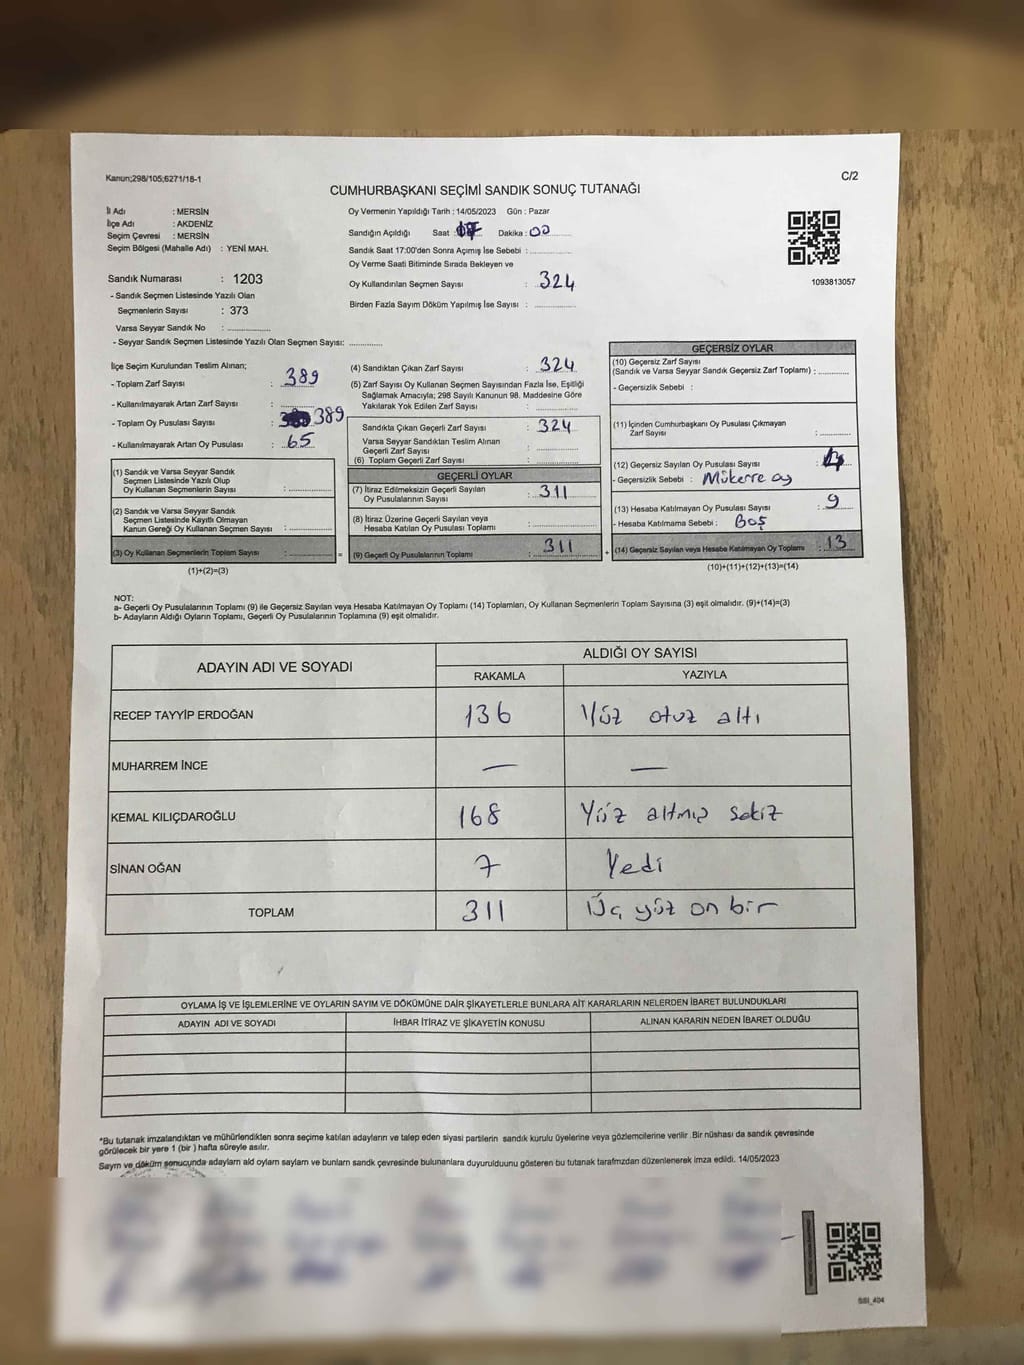 Kanun;298/105;6271/18-1
C/2
CUMHURBAŞKANI SEÇİMİ SANDIK SONUÇ TUTANAĞI
İl Adı : MERSİN
İlçe Adı : AKDENİZ
Seçim Çevresi : MERSİN
Seçim Bölgesi (Mahalle Adı) : YENİ MAH.
Sandık Numarası : 1203
- Sandık Seçmen Listesinde Yazılı Olan
Seçmenlerin Sayısı : 373
Varsa Seyyar Sandık No : ..............
- Seyyar Sandık Seçmen Listesinde Yazılı Olan Seçmen Sayısı: ............
Oy Vermenin Yapıldığı Tarih : 14/05/2023 Gün : Pazar
Sandığın Açıldığı Saat : 17 Dakika : 00
Sandık Saat 17:00'den Sonra Açımış İse Sebebi : ..............
Oy Verme Saati Bitiminde Sırada Bekleyen ve
Oy Kullandırılan Seçmen Sayısı : 324
Birden Fazla Sayım Döküm Yapılmış İse Sayısı : ..............
1093813057
İlçe Seçim Kurulundan Teslim Alınan;
- Toplam Zarf Sayısı : 389
- Kullanılmayarak Artan Zarf Sayısı : ..............
- Toplam Oy Pusulası Sayısı : 389
- Kullanılmayarak Artan Oy Pusulası : 65
(1) Sandık ve Varsa Seyyar Sandık
Seçmen Listesinde Yazılı Olup
Oy Kullanan Seçmenlerin Sayısı : ..............
(2) Sandık ve Varsa Seyyar Sandık
Seçmen Listesinde Kayıtlı Olmayan
Kanun Gereği Oy Kullanan Seçmen Sayısı : ..............
(3) Oy Kullanan Seçmenlerin Toplam Sayısı : .............. =
(1)+(2)=(3)
(4) Sandıktan Çıkan Zarf Sayısı : 324
(5) Zarf Sayısı Oy Kullanan Seçmen Sayısından Fazla İse, Eşitliği
Sağlamak Amacıyla; 298 Sayılı Kanunun 98. Maddesine Göre
Yakılarak Yok Edilen Zarf Sayısı : ..............
Sandıkta Çıkan Geçerli Zarf Sayısı : 324
Varsa Seyyar Sandıktan Teslim Alınan
Geçerli Zarf Sayısı : ..............
(6) Toplam Geçerli Zarf Sayısı : ..............
GEÇERLİ OYLAR
(7) İtiraz Edilmeksizin Geçerli Sayılan
Oy Pusulalarının Sayısı : 311
(8) İtiraz Üzerine Geçerli Sayılan veya
Hesaba Katılan Oy Pusulası Toplamı : ..............
(9) Geçerli Oy Pusulalarının Toplamı : 311 +
GEÇERSİZ OYLAR
(10) Geçersiz Zarf Sayısı
(Sandık ve Varsa Seyyar Sandık Geçersiz Zarf Toplamı) : ..............
- Geçersizlik Sebebi :
(11) İçinden Cumhurbaşkanı Oy Pusulası Çıkmayan
Zarf Sayısı : ..............
(12) Geçersiz Sayılan Oy Pusulası Sayısı : 4
- Geçersizlik Sebebi : Mükerre oy
(13) Hesaba Katılmayan Oy Pusulası Sayısı : 9
- Hesaba Katılmama Sebebi : Boş
(14) Geçersiz Sayılan veya Hesaba Katılmayan Oy Toplamı : 13
(10)+(11)+(12)+(13)=(14)
NOT:
a- Geçerli Oy Pusulalarının Toplamı (9) ile Geçersiz Sayılan veya Hesaba Katılmayan Oy Toplamı (14) Toplamları, Oy Kullanan Seçmenlerin Toplam Sayısına (3) eşit olmalıdır. (9)+(14)=(3)
b- Adayların Aldığı Oyların Toplamı, Geçerli Oy Pusulalarının Toplamına (9) eşit olmalıdır.
ADAYIN ADI VE SOYADI
ALDIĞI OY SAYISI
RAKAMLA YAZIYLA
RECEP TAYYİP ERDOĞAN 136 Yüz otuz altı
MUHARREM İNCE — —
KEMAL KILIÇDAROĞLU 168 Yüz altmış sekiz
SİNAN OĞAN 7 Yedi
TOPLAM 311 Üç yüz on bir
OYLAMA İŞ VE İŞLEMLERİNE VE OYLARIN SAYIM VE DÖKÜMÜNE DAİR ŞİKAYETLERLE BUNLARA AİT KARARLARIN NELERDEN İBARET BULUNDUKLARI
ADAYIN ADI VE SOYADI İHBAR İTİRAZ VE ŞİKAYETİN KONUSU ALINAN KARARIN NEDEN İBARET OLDUĞU
*Bu tutanak imzalandıktan ve mühürlendikten sonra seçime katılan adayların ve talep eden siyasi partilerin sandık kurulu üyelerine veya gözlemcilerine verilir .Bir nüshası da sandık çevresinde
görülecek bir yere 1 (bir ) hafta süreyle asılır.
Sayım ve döküm sonucunda adayların ald oyların sayları ve bunların sandk çevresinde bulunanlara duyurulduunu gösteren bu tutanak tarafmzdan düzenlenerek imza edildi. 14/05/2023
SSI_404